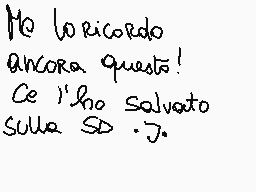 Me lo ricordo
ancora questo!
Ce l'ho salvato
sulla SD .J.